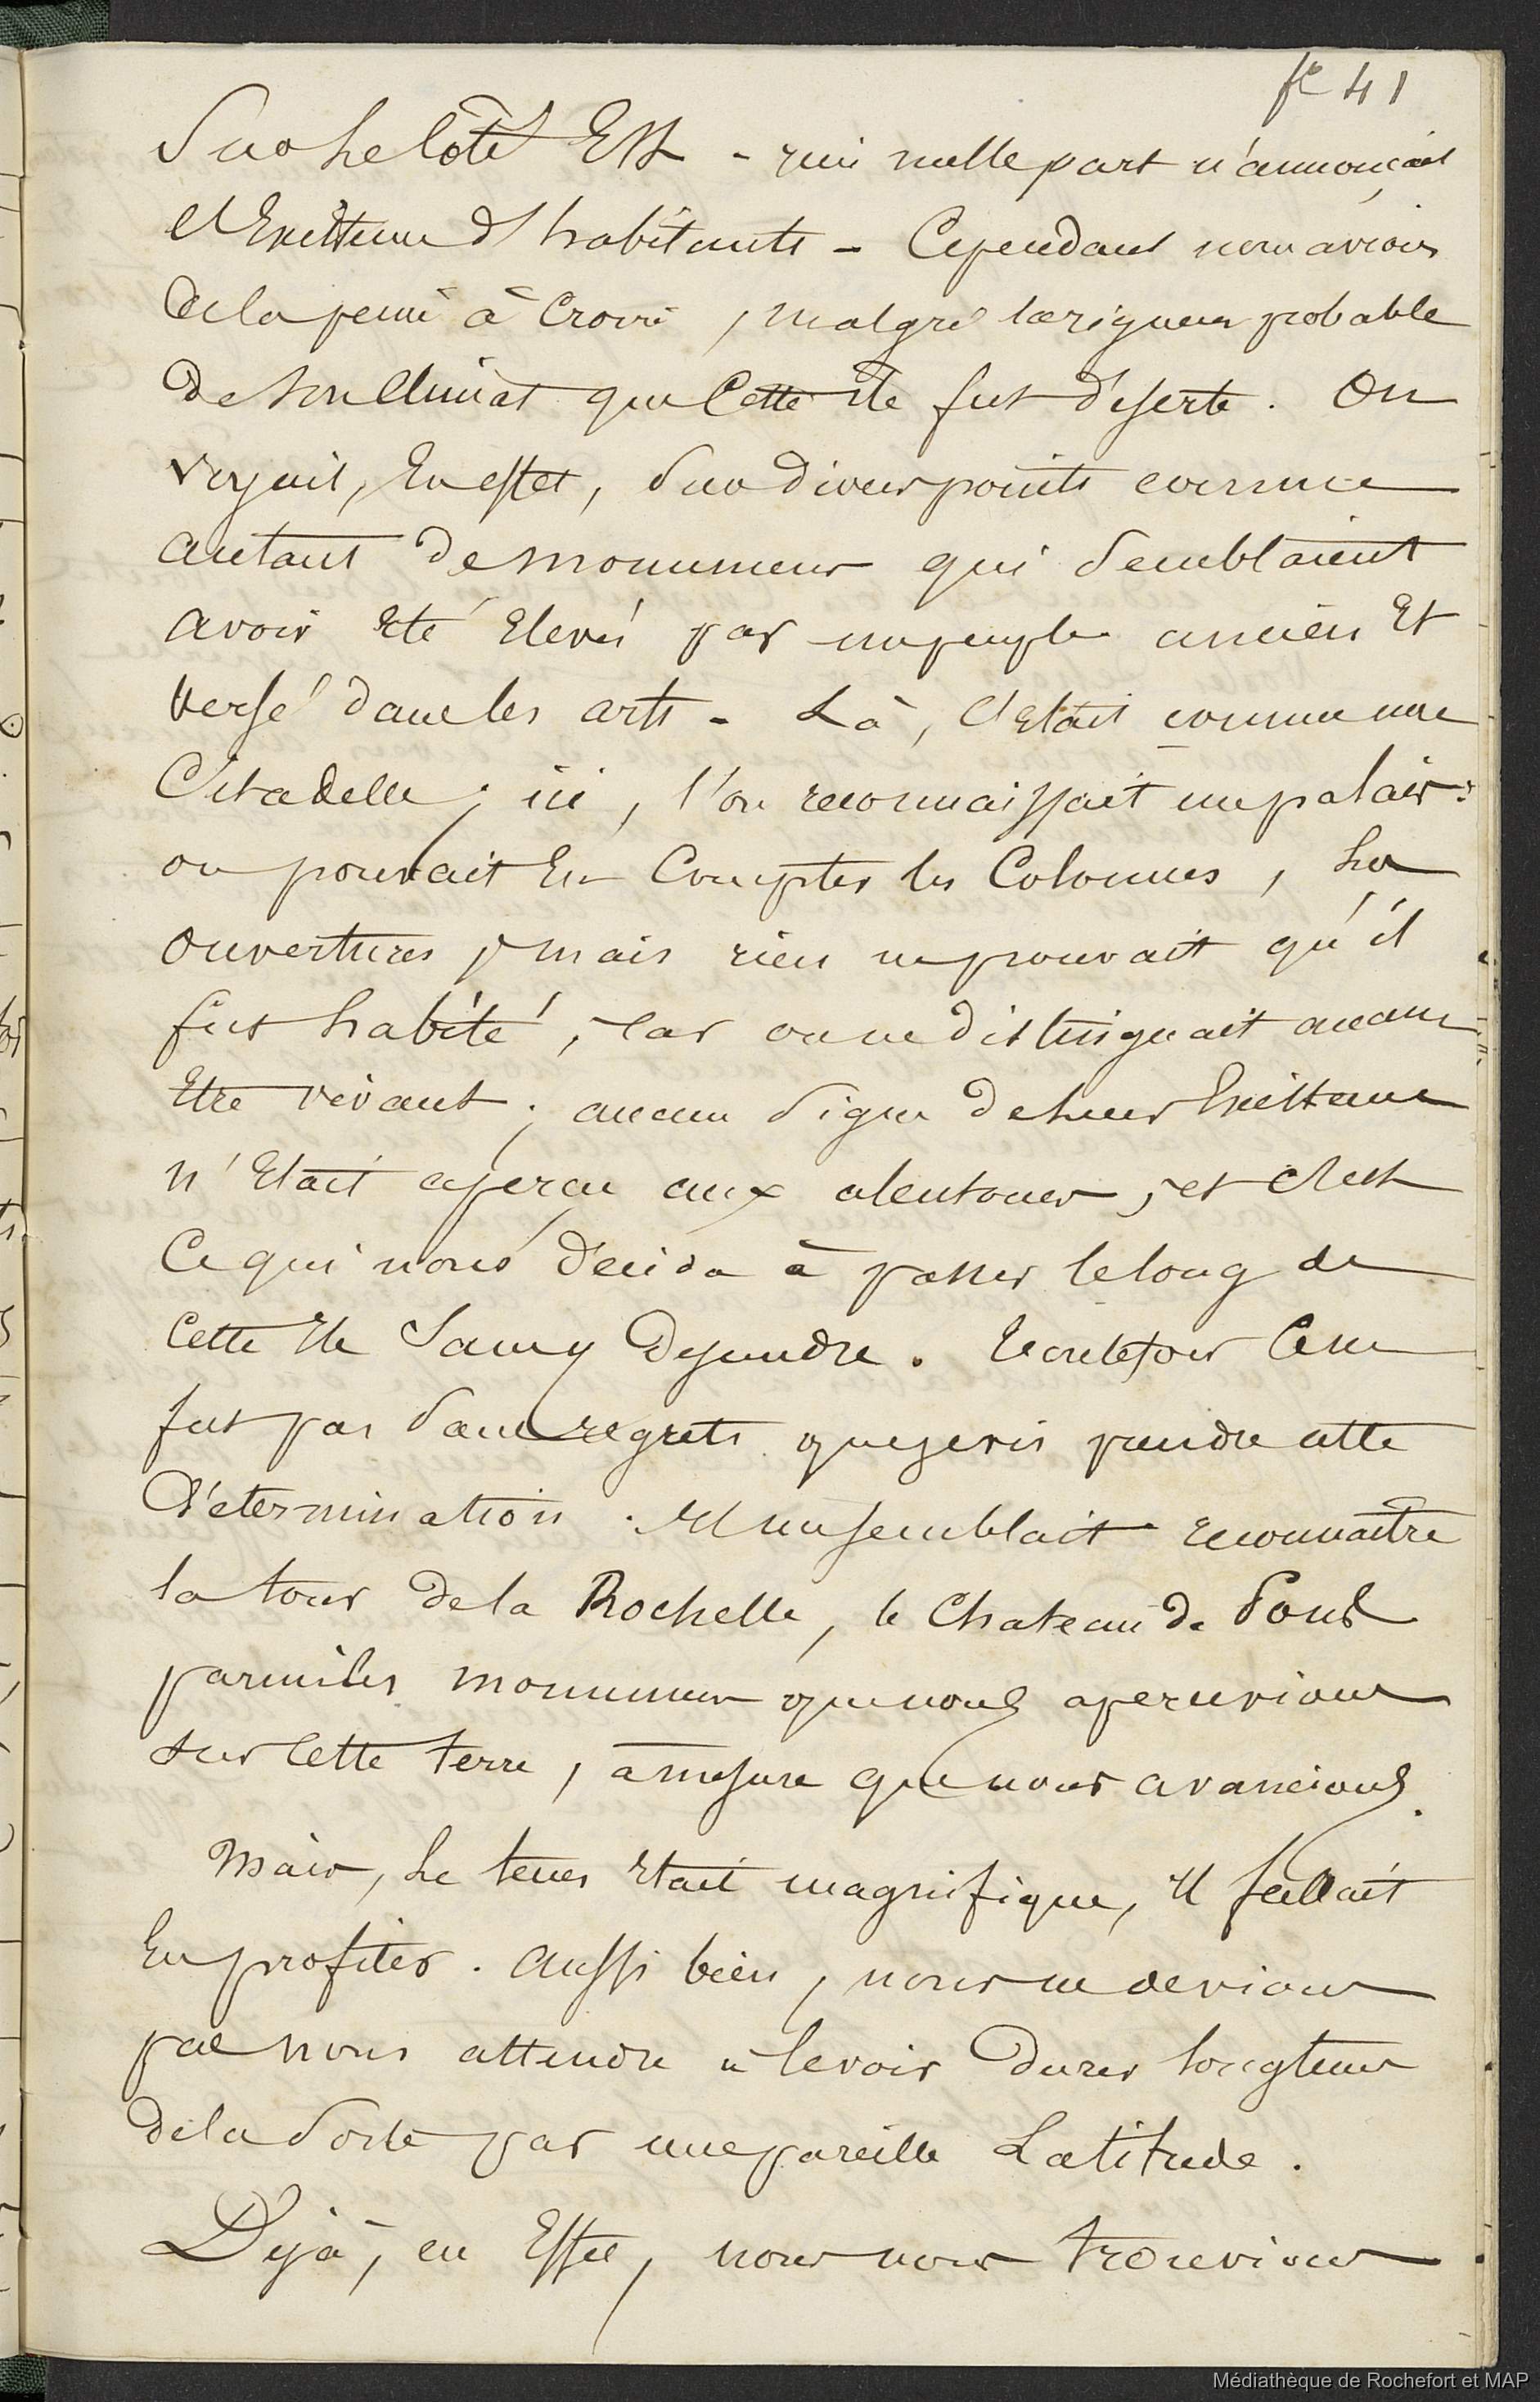 fo 41
Sur le côté Est - rien nulle part n'annonçait
l'Existence d'habitants - Cependant nous avions
de la peine à Croire, malgré la rigueur probable
de son Climat que Cette île fut déserte. On
voyait, En effet, sur divers points comme
autant de monumens qui Semblaient
avoir Eté Elevés par un peuple ancien Et
versé dans les arts - Là, C'Etait comme une
Citadelle; ici, l'on reconnaissait un palais:
on pouvait En Compter les Colonnes, les
Ouvertures; mais rien ne prouvait qu'il
fut habité, Car on ne distinguait aucun
Etre vivant; aucun Signe de leur Existence
n'Etait aperçu aux alentours; et C'est
Ce qui nous décida à passer le long de
Cette Ile Sans y descendre. Toutefois Ce ne
fut pas Sans regrets que je vis prendre cette
Détermination. Il me semblait reconnaître
la tour de la Rochelle, le Chateau de Pons
parmi les monumens que nous apercevions
sur Cette terre, à mesure que nous avancions.
Mais, le tems Etait magnifique, Il fallait
En profiter. Aussi bien, nous ne devions
pas nous attendre à le voir Durer longtems
de la Sorte par une pareille Latitude.
Déjà, en Effet, nous nous trouvions
Médiathèque de Rochefort et MAP